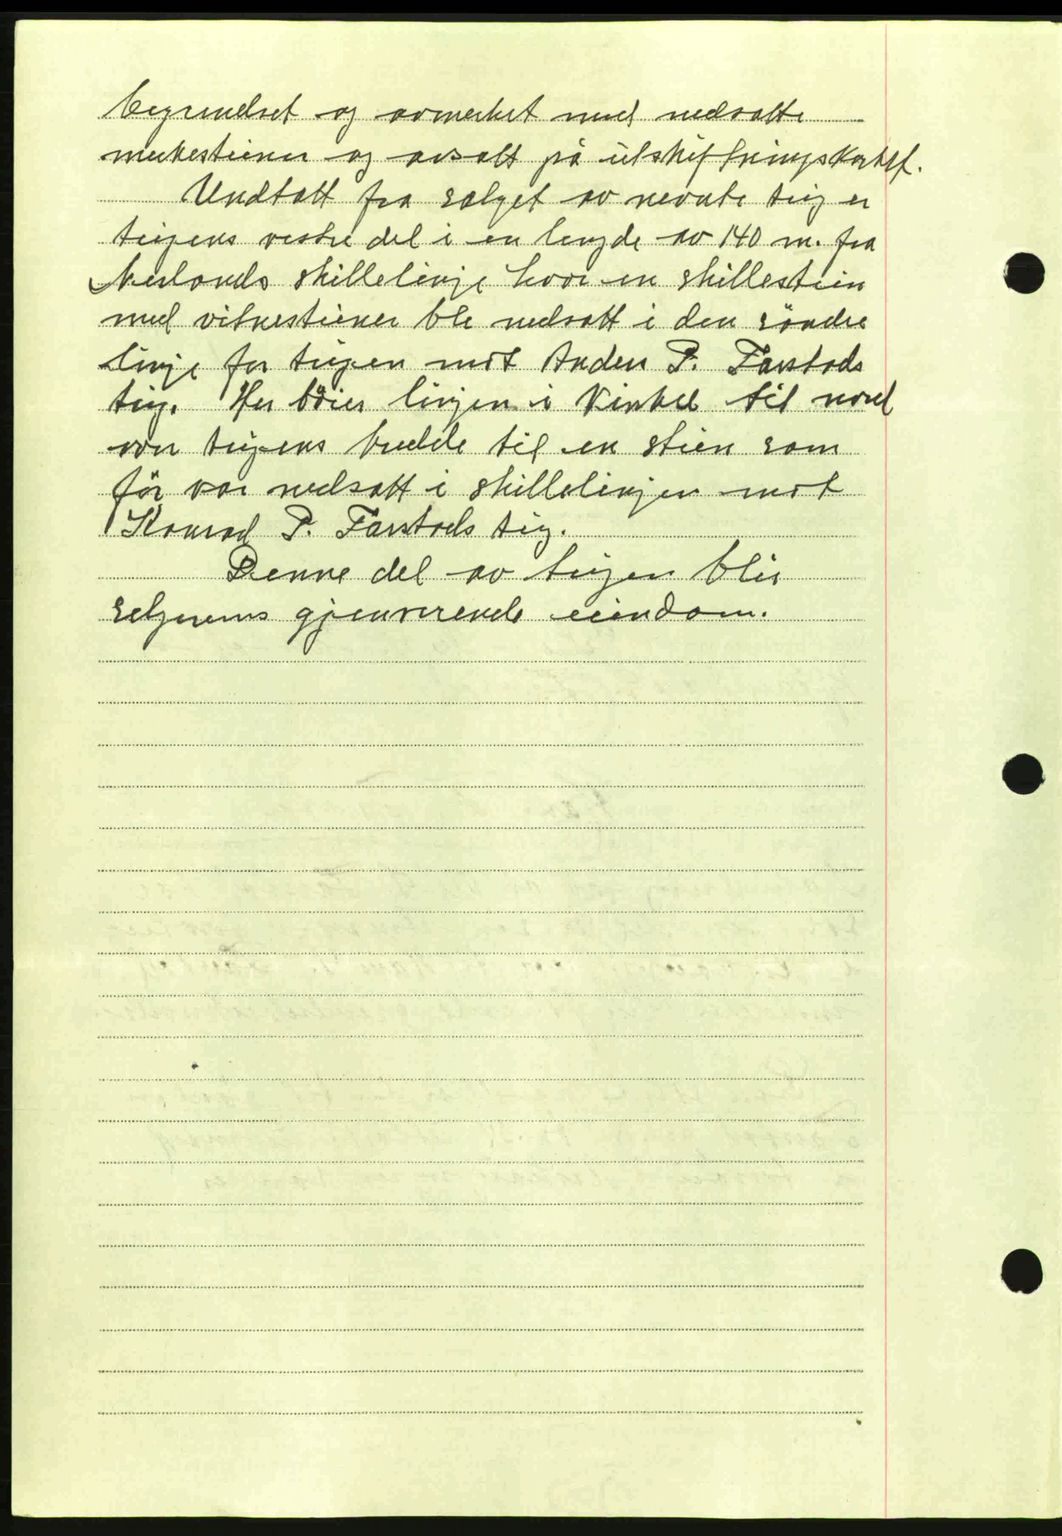 begrendset og avmerket med nedsatte
merkesteiner og avsatt på utskiftningskartet.
Undtatt fra salget av nevnte teig er
teigens vestre del i en lengde av 140 m. fra
skillelinje hvor en skillestein
med vitnesteiner ble nedsatt i den söndre
linje for teigen mot Anders P. Farstads
teig. Her böier linjen i vinkel til nord
over teigens bredde til en stien som
för var nedsatt i skillelinjen mot
Konrad P. Farstads teig.
Denne del av teigen blir
selgerens gjenverende eiendom.